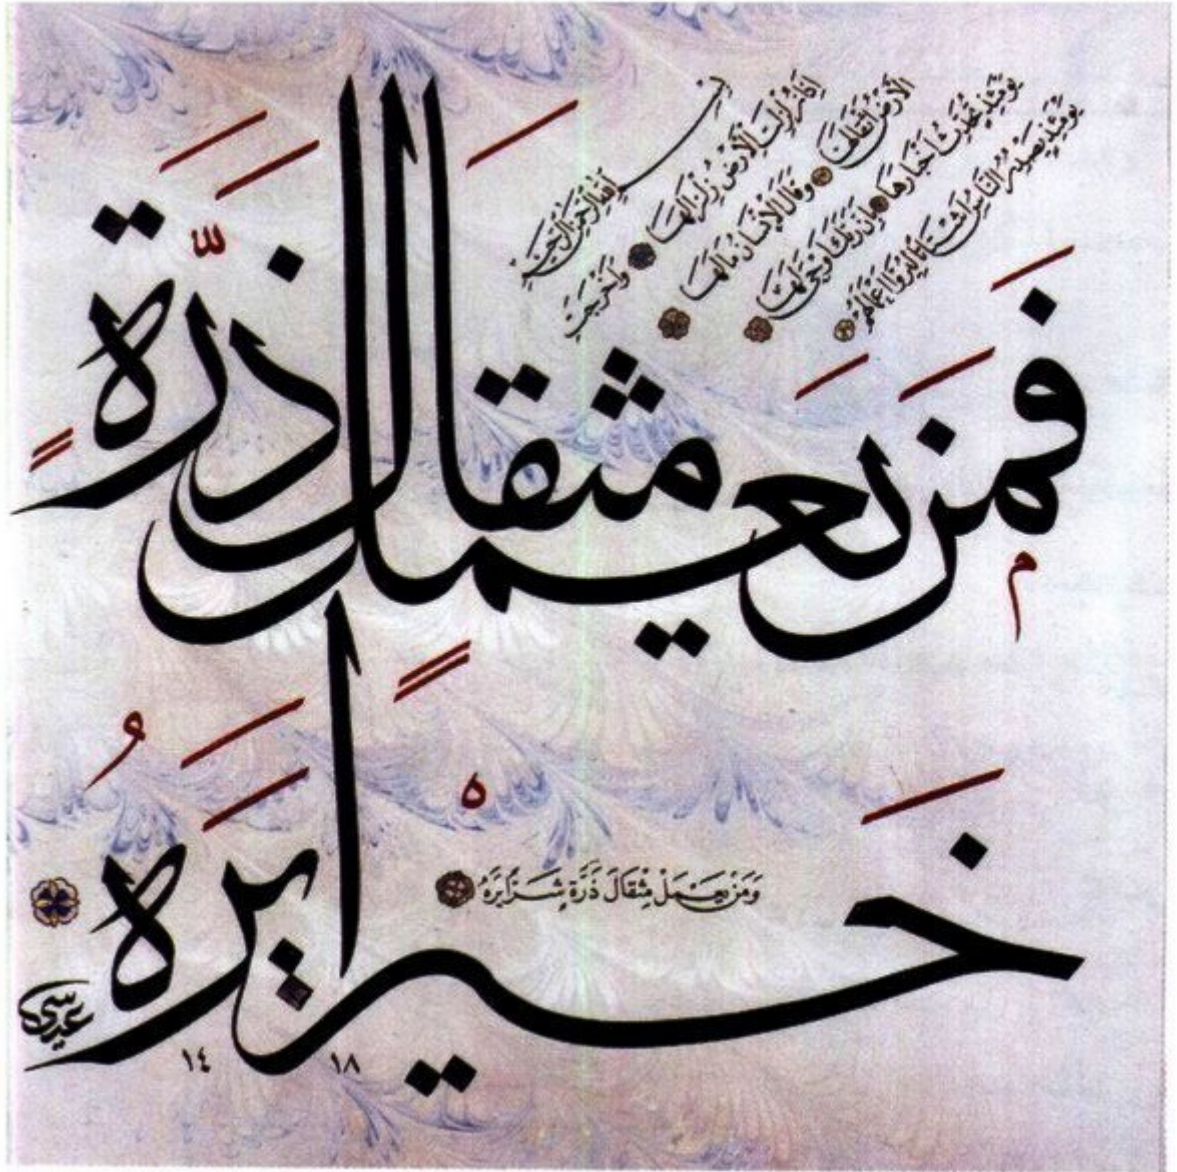 بسم الله الرحمن الرحيم
إذا زلزلت الأرض زلزالها وأخرجت
الأرض أثقالها وقال الإنسان ما لها
يومئذ تحدث أخبارها بأن ربك أوحى لها
يومئذ يصدر الناس أشتاتا ليروا أعمالهم
فَمَن يَعمل مثقَالَ ذَرَّةٍ
خَيْرًا يَرَهُ
وَمَنْ يَعْمَلْ مِثْقَالَ ذَرَّةٍ شَرًّا يَرَهُ
عيسى
١٤١٨